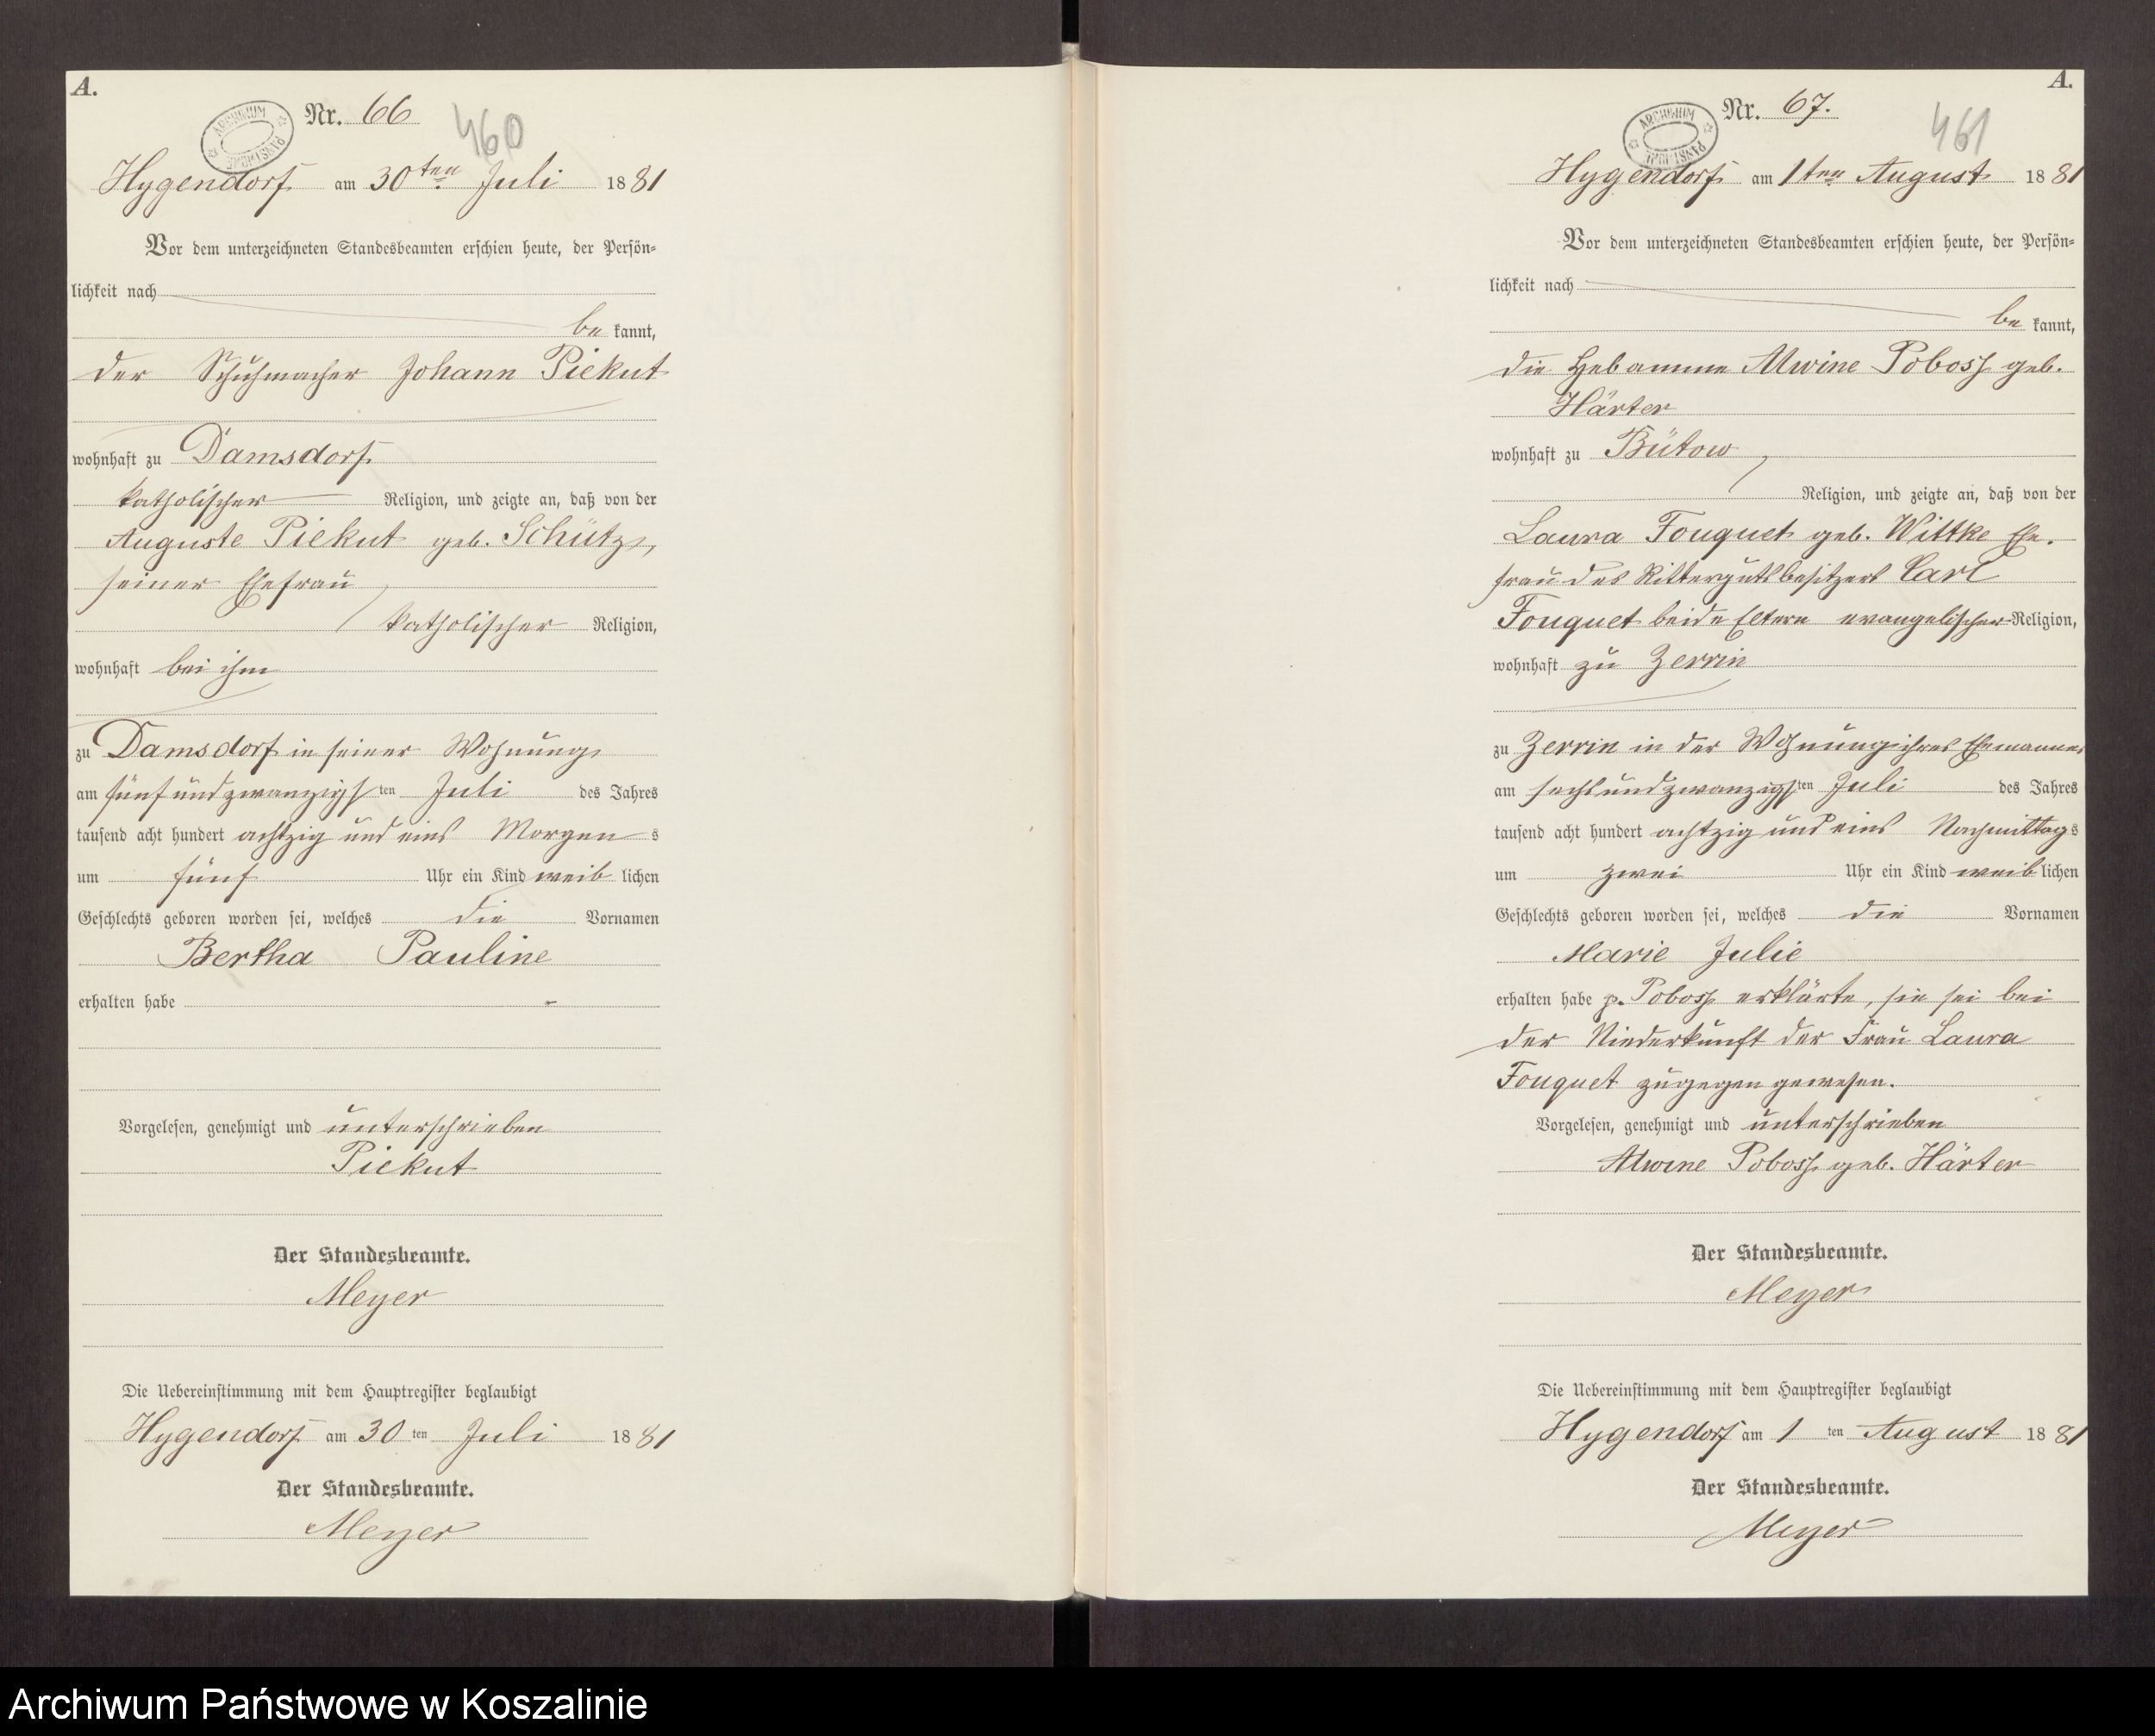 A.
Nr. 66
460
ARCHIWUM PAŃSTWOWE
Hygendorf am 30ten Juli 1881
Vor dem unterzeichneten Standesbeamten erschien heute, der Persön=
lichkeit nach
be kannt,
der Schuhmacher Johann Piekut
wohnhaft zu Damsdorf
katholischer Religion, und zeigte an, daß von der
Auguste Piekut geb. Schütz,
seiner Ehefrau
katholischer Religion,
wohnhaft bei ihm
zu Damsdorf in seiner Wohnung
am fünfundzwanzigsten Juli des Jahres
tausend acht hundert achtzig und eins Morgens
um fünf Uhr ein Kind weiblichen
Geschlechts geboren worden sei, welches die Vornamen
Bertha Pauline
erhalten habe
Vorgelesen, genehmigt und unterschrieben
Piekut
Der Standesbeamte.
Meyer
Die Uebereinstimmung mit dem Hauptregister beglaubigt
Hygendorf am 30ten Juli 1881
Der Standesbeamte.
Meyer
A.
Nr. 67.
461
ARCHIWUM PAŃSTWOWE
Hygendorf am 1ten August 1881
Vor dem unterzeichneten Standesbeamten erschien heute, der Persön=
lichkeit nach
be kannt,
die Hebamme Alwine Poboss geb.
Härter
wohnhaft zu Bütow,
Religion, und zeigte an, daß von der
Laura Fouquet geb. Wittke Ehe.
frau des Rittergutsbesitzers Carl
Fouquet beide Eltern evangelischer Religion,
wohnhaft zu Zerrin
zu Zerrin in der Wohnung ihres Ehemannes
am sechsundzwanzigsten Juli des Jahres
tausend acht hundert achtzig und eins Nachmittags
um zwei Uhr ein Kind weiblichen
Geschlechts geboren worden sei, welches die Vornamen
Marie Julie
erhalten habe p. Poboss erklärte, sie sei bei
der Niederkunft der Frau Laura
Fouquet zugegen gewesen.
Vorgelesen, genehmigt und unterschrieben
Alwine Poboss geb. Härter
Der Standesbeamte.
Meyer
Die Uebereinstimmung mit dem Hauptregister beglaubigt
Hygendorf am 1ten August 1881
Der Standesbeamte.
Meyer
Archiwum Państwowe w Koszalinie